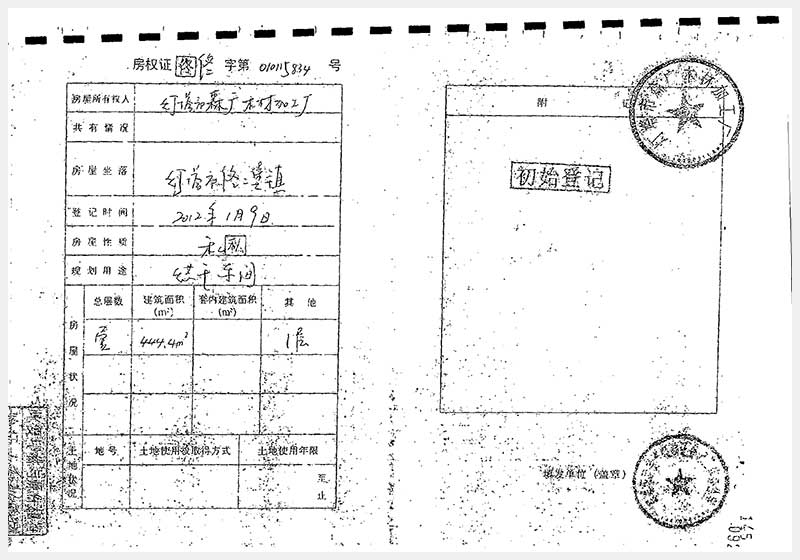 房权证 佟 佟 字第 010115834 号
房屋所有权人 灯塔市森广木材加工厂
共有情况
房屋坐落 灯塔市佟二堡镇
登记时间 2012年1月9日
房屋性质 私
规划用途 烘干车间
房屋状况
总层数 建筑面积 (m²) 套内建筑面积 (m²) 其他
壹 444.4m² 1层
土地状况
地号 土地使用权取得方式 土地使用年限
至
止
附
初始登记
填发单位 (盖章)